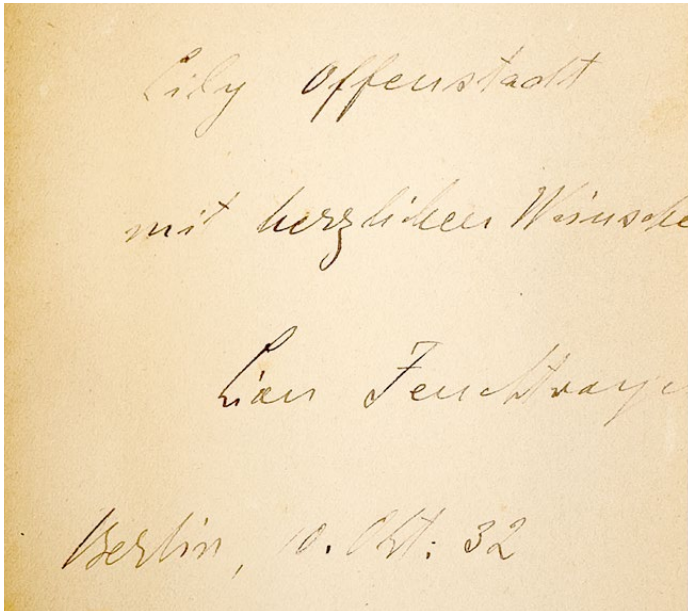 Lily Offenstadt
mit herzlichen Wünsche
Lion Feuchtwange
Berlin, 10. Okt. 32